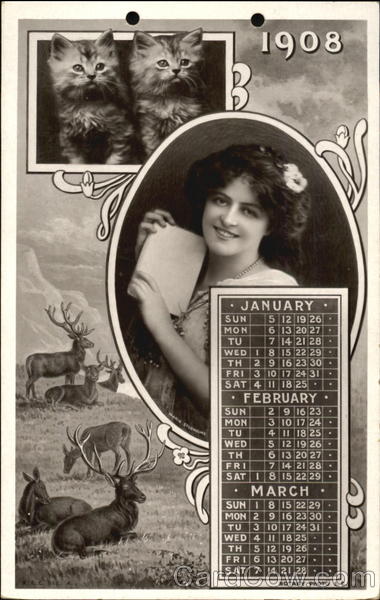 1908
JANUARY
SUN 5 12 19 26
MON 6 13 20 27
TU 7 14 21 28
WED 1 8 15 22 29
TH 2 9 16 23 30
FRI 3 10 17 24 31
SAT 4 11 18 25
FEBRUARY
SUN 2 9 16 23
MON 3 10 17 24
TU 4 11 18 25
WED 5 12 19 26
TH 6 13 20 27
FRI 7 14 21 28
SAT 1 8 15 22 29
MARCH
SUN 1 8 15 22 29
MON 2 9 16 23 30
TU 3 10 17 24 31
WED 4 11 18 25
TH 5 12 19 26
FRI 6 13 20 27
SAT 7 14 21 28
ROTARY PHOTO
CardCow.com